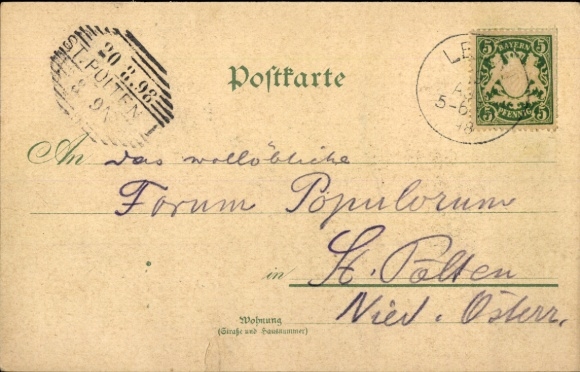 ST. PÖLTEN
20 8.98
8-9N
LE
5-6
98
5 BAYERN 5
5 PFENNIG 5
Postkarte
An das wollöbliche
Forum Populorum
in St. Pölten
Nied. Österr.
Wohnung
(Straße und Hausnummer)